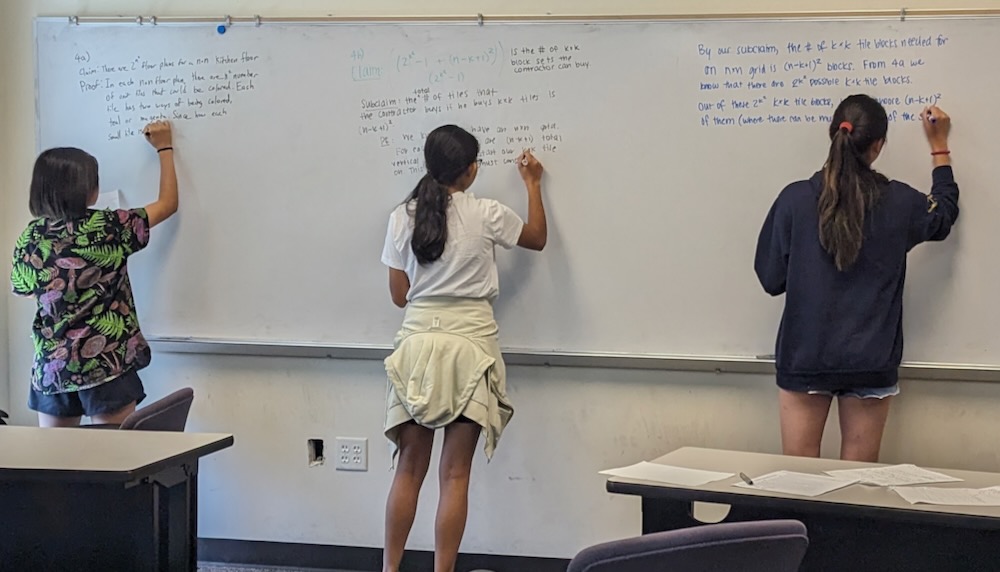 4a)
Claim: There are 2^n² floor plans for a n×n kitchen floor
Proof: In each n×n floor plan, there are n² number
of of tiles that could be colored. Each
tile has two ways of being colored,
teal or magenta. Since how each
small tile
4b)
Claim: (2^k² - 1 + (n-k+1)²)
(2^k² - 1)
is the # of k×k
block sets the
contractor can buy
total
Subclaim: the # of tiles that
the contractor buys if he buys k×k tiles is
(n-k+1)².
Pf: We have an n×n grid.
For are (n-k+1) total
vertical start our k×k tile
on this must
By our subclaim, the # of k×k tile blocks needed for
an nm grid is (n-k+1)² blocks. From 4a we
know that there are 2^k² possible k×k tile blocks.
Out of these 2^k² k×k tile blocks, (n-k+1)²
of them (where there can be of the